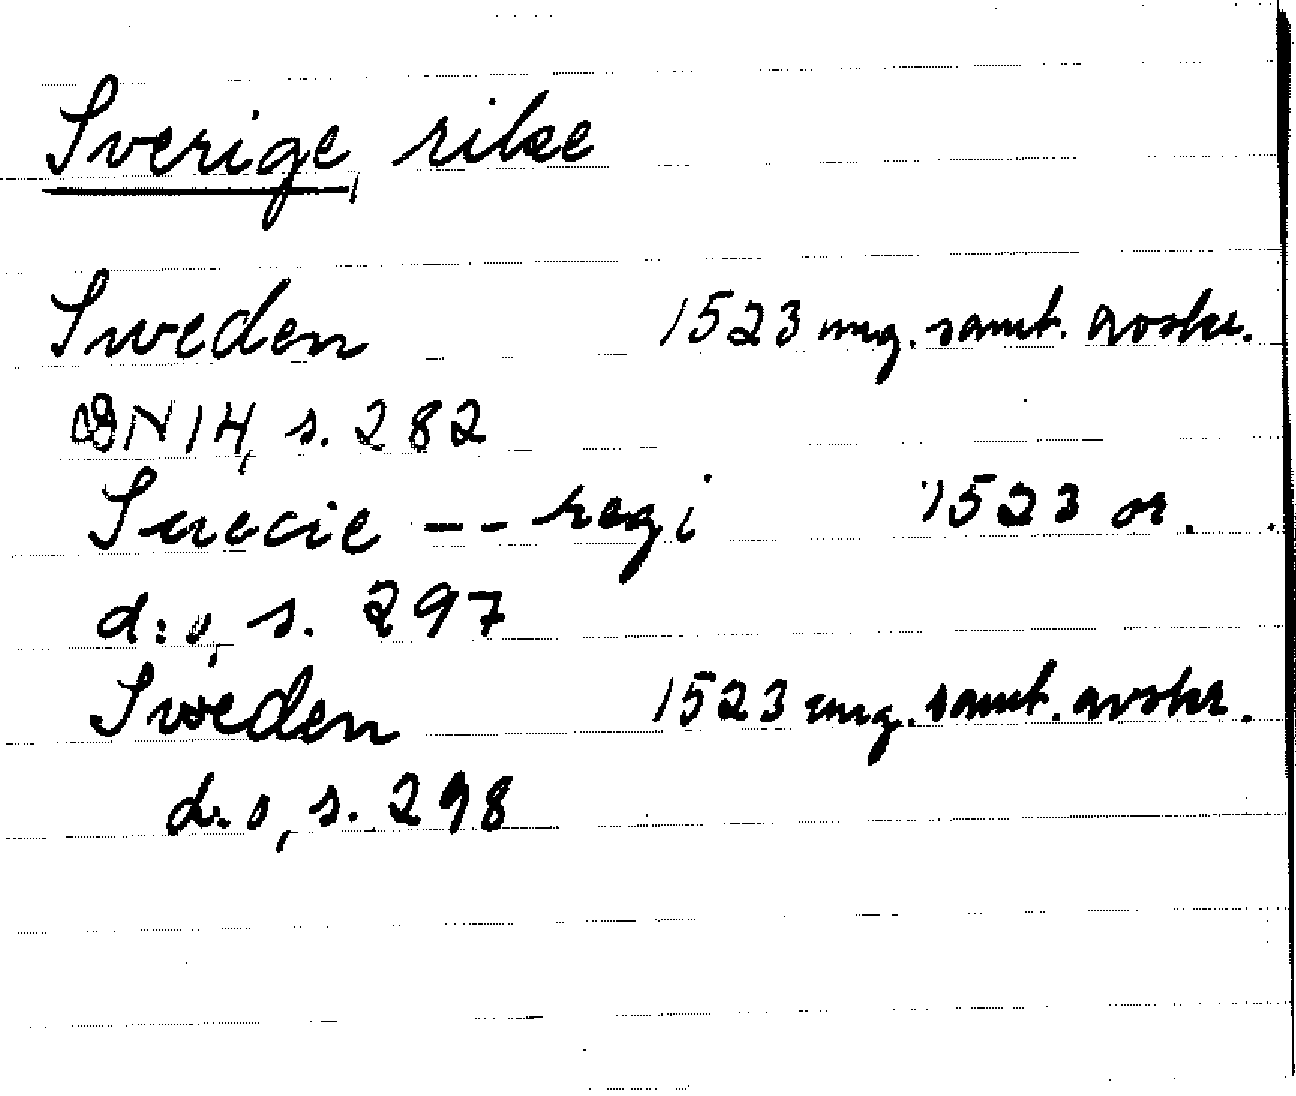 Sverige, rike
Sweden 1523 ung. samt. avskr.
DN 14, s. 282
Suecie -- regi 1523 or.
d:o, s. 297
Sweden 1523 ung. samt. avskr.
d:o, s. 298